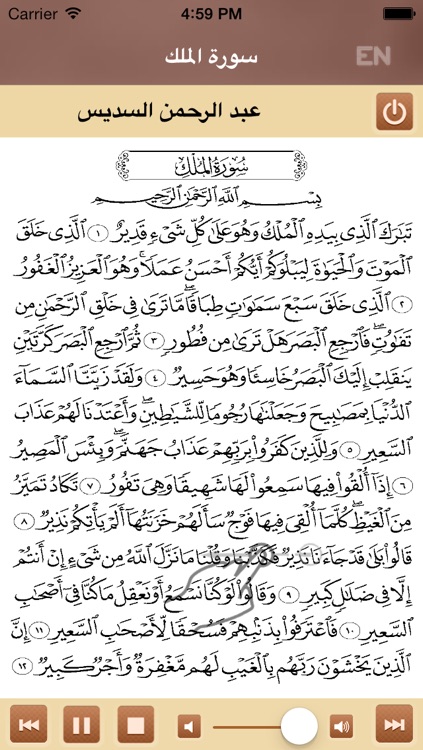 Carrier 4:59 PM
سورة الملك EN
عبد الرحمن السديس
سُورَةُ المُلْكِ
بِسْمِ ٱللَّهِ ٱلرَّحْمَٰنِ ٱلرَّحِيمِ
تَبَٰرَكَ ٱلَّذِى بِيَدِهِ ٱلْمُلْكُ وَهُوَ عَلَىٰ كُلِّ شَىْءٍ قَدِيرٌ ١ ٱلَّذِى خَلَقَ
ٱلْمَوْتَ وَٱلْحَيَوٰةَ لِيَبْلُوَكُمْ أَيُّكُمْ أَحْسَنُ عَمَلًا ۚ وَهُوَ ٱلْعَزِيزُ ٱلْغَفُورُ
٢ ٱلَّذِى خَلَقَ سَبْعَ سَمَٰوَٰتٍ طِبَاقًا ۖ مَّا تَرَىٰ فِى خَلْقِ ٱلرَّحْمَٰنِ مِن
تَفَٰوُتٍ ۖ فَٱرْجِعِ ٱلْبَصَرَ هَلْ تَرَىٰ مِن فُطُورٍ ٣ ثُمَّ ٱرْجِعِ ٱلْبَصَرَ كَرَّتَيْنِ
يَنقَلِبْ إِلَيْكَ ٱلْبَصَرُ خَاسِئًا وَهُوَ حَسِيرٌ ٤ وَلَقَدْ زَيَّنَّا ٱلسَّمَآءَ
ٱلدُّنْيَا بِمَصَٰبِيحَ وَجَعَلْنَٰهَا رُجُومًا لِّلشَّيَٰطِينِ ۖ وَأَعْتَدْنَا لَهُمْ عَذَابَ
ٱلسَّعِيرِ ٥ وَلِلَّذِينَ كَفَرُوا۟ بِرَبِّهِمْ عَذَابُ جَهَنَّمَ ۖ وَبِئْسَ ٱلْمَصِيرُ
٦ إِذَآ أُلْقُوا۟ فِيهَا سَمِعُوا۟ لَهَا شَهِيقًا وَهِىَ تَفُورُ ٧ تَكَادُ تَمَيَّزُ
مِنَ ٱلْغَيْظِ ۖ كُلَّمَآ أُلْقِىَ فِيهَا فَوْجٌ سَأَلَهُمْ خَزَنَتُهَآ أَلَمْ يَأْتِكُمْ نَذِيرٌ ٨
قَالُوا۟ بَلَىٰ قَدْ جَآءَنَا نَذِيرٌ فَكَذَّبْنَا وَقُلْنَا مَا نَزَّلَ ٱللَّهُ مِن شَىْءٍ إِنْ أَنتُمْ
إِلَّا فِى ضَلَٰلٍ كَبِيرٍ ٩ وَقَالُوا۟ لَوْ كُنَّا نَسْمَعُ أَوْ نَعْقِلُ مَا كُنَّا فِىٓ أَصْحَٰبِ
ٱلسَّعِيرِ ١٠ فَٱعْتَرَفُوا۟ بِذَنۢبِهِمْ فَسُحْقًا لِّأَصْحَٰبِ ٱلسَّعِيرِ ١١ إِنَّ
ٱلَّذِينَ يَخْشَوْنَ رَبَّهُم بِٱلْغَيْبِ لَهُم مَّغْفِرَةٌ وَأَجْرٌ كَبِيرٌ ١٢